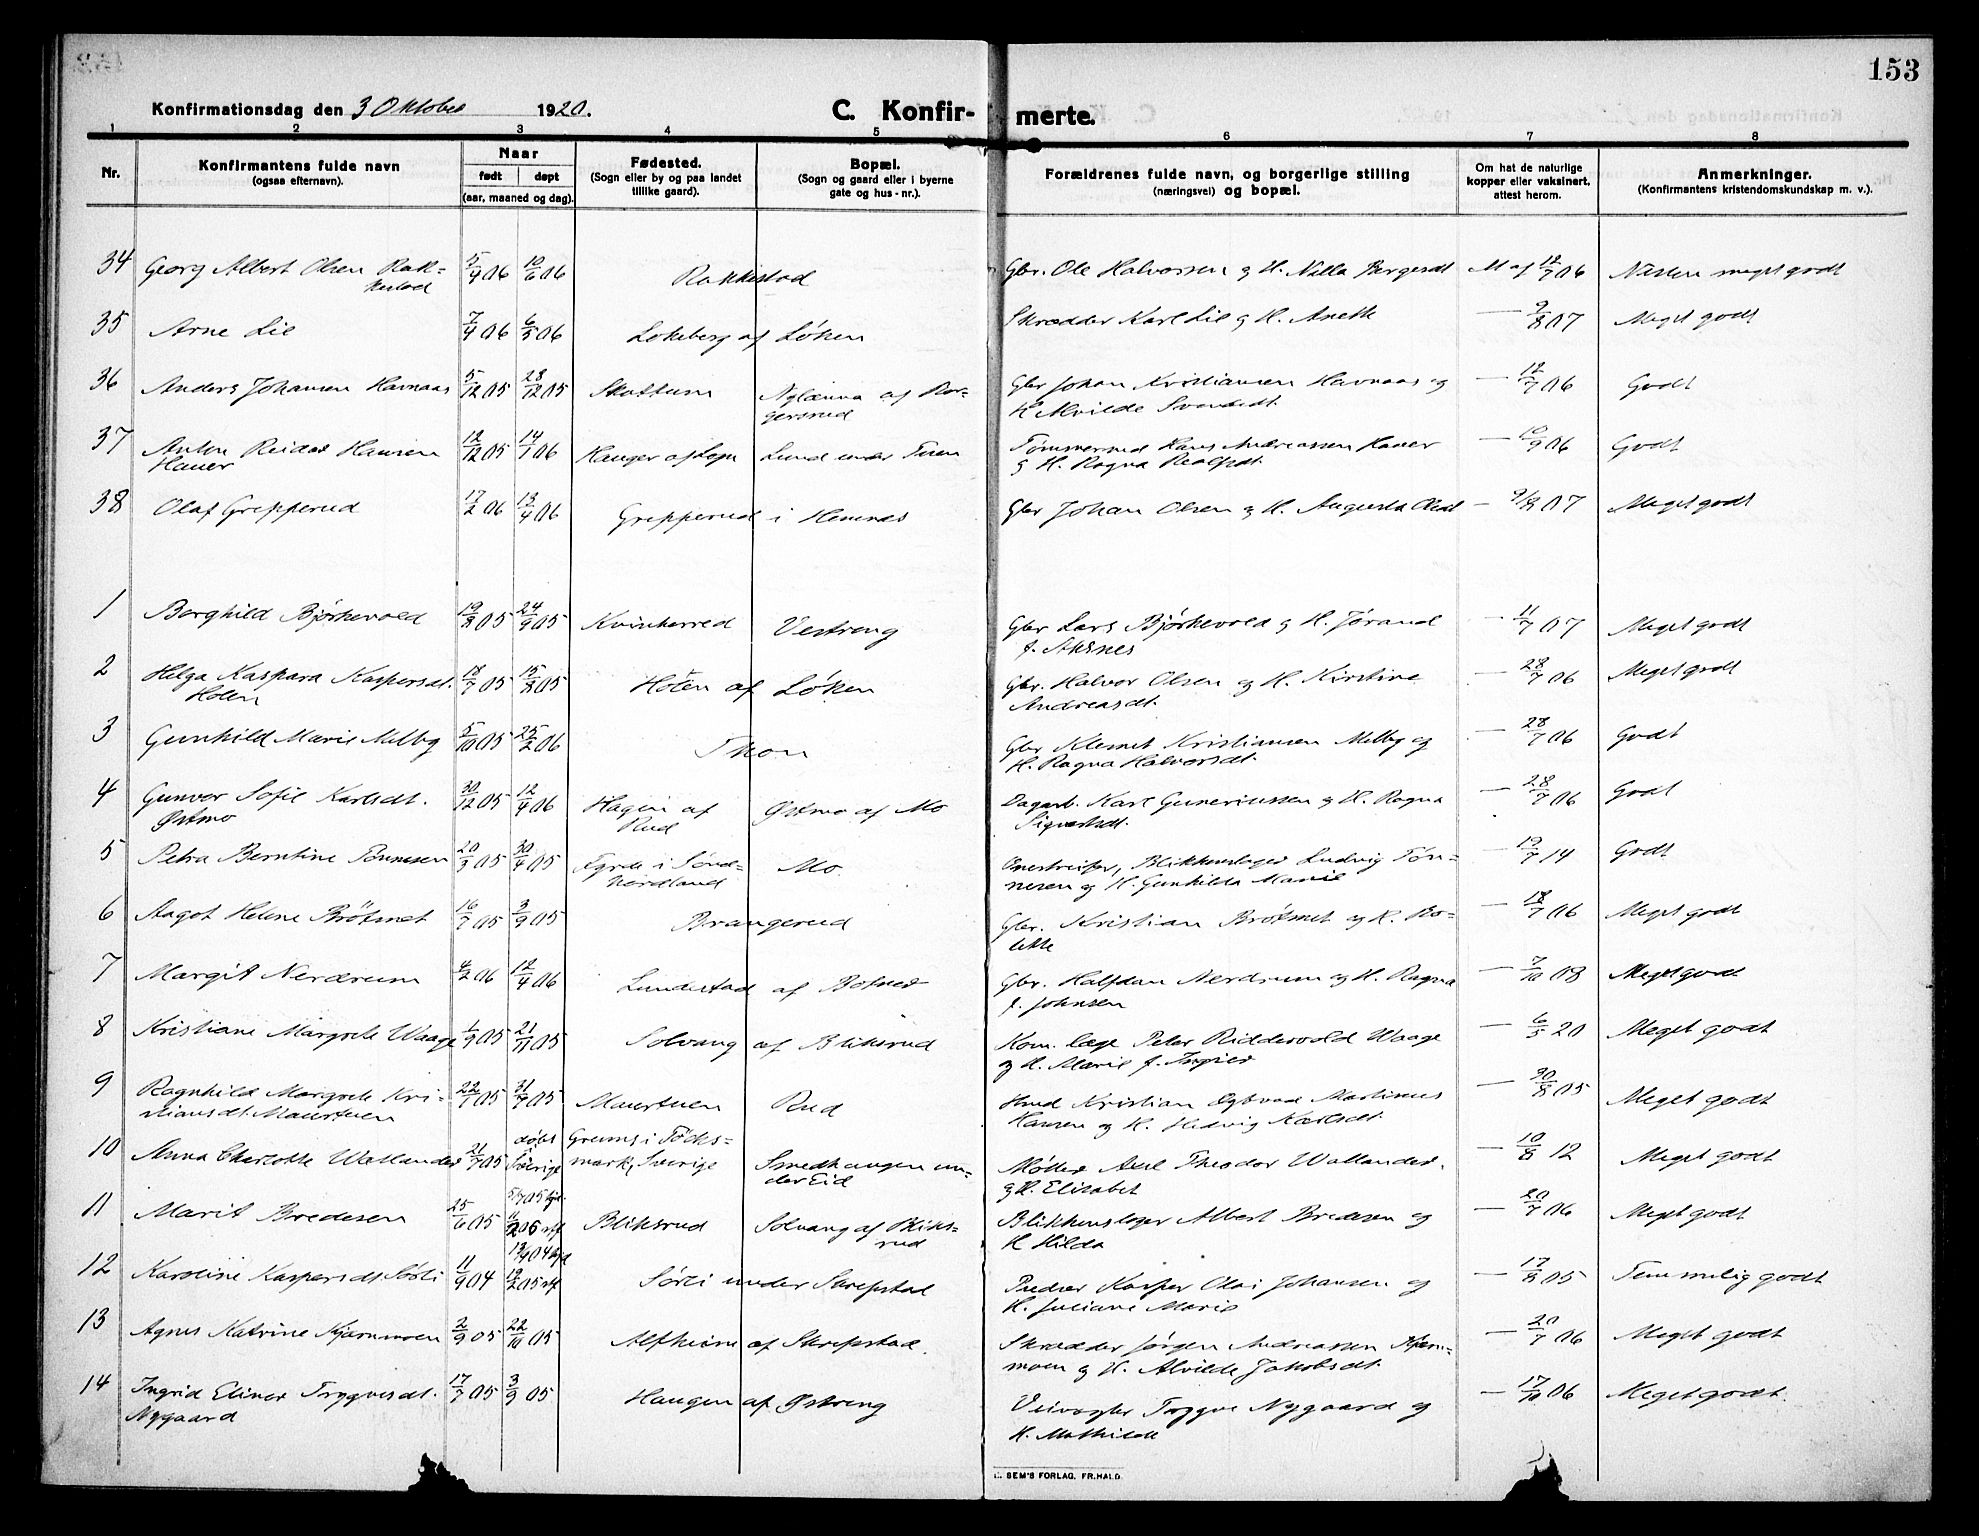 153
Konfirmationsdag den 3 Oktober 1920.
C. Konfir- merte.
1 2 3 4 5 6 7 8
Nr.
Konfirmantens fulde navn
(ogsaa efternavn).
Naar
født døpt
(aar, maaned og dag).
Fødested.
(Sogn eller by og paa landet
tillike gaard).
Bopæl.
(Sogn og gaard eller i byerne
gate og hus-nr.).
Forældrenes fulde navn, og borgerlige stilling
(næringsvei) og bopæl.
Om hat de naturlige
kopper eller vaksinert,
attest herom.
Anmerkninger.
(Konfirmantens kristendomskundskap m. v.).
34 Georg Albert Olsen Rak- 5/4 06 10/6 06 Rakkestad Gbr. Ole Halvorsen og H. 12/7 06 Næsten meget godt
kestad
35 Arne Lie 7/4 06 6/5 06 Lokeberg af Løken Skrædder Karl Lie og H. Anette — 9/8 07 Meget godt
36 Anders Johansen Havnaas 5/12 05 28/12 05 Skattum Nylænna af Bor- Gbr Johan Kristiansen Havnaas og — 12/7 06 Godt
gersrud H Alvilde
37 Anton Reidar Hansen 12/12 05 14/1 06 Hanger af Lund under Tømmermand Hans Andreassen Hauer — 10/9 06 Godt
Hauer og H. Ragna
38 Olaf Grepperud 17/2 06 13/4 06 Grepperud i Hemnes Gbr Johan Olsen og H. Augusta — 9/8 07 Meget godt
1 Borghild Bjørkevold 19/8 05 24/9 05 Kvinherred Vestreng Gbr Lars Bjørkevold og H. Jørand — 11/7 07 Meget godt
f. Aksnes
2 Helga Kaspara Kaspersdt. 18/7 05 15/8 05 Holen af Løken Gbr. Halvor Olsen og H. Kirstine — 28/7 06 Meget godt
Holen Andreasdt.
3 Gunhild Marie Melby 5/10 05 25/2 06 Thon Gbr Klemet Kristiansen Melby og — 28/7 06 Godt
H. Ragna Halvorsdt.
4 Gunvor Sofie Karlsdt. 30/12 05 12/4 06 Hagen af Østmo af Mo Dagarb. Karl Guneriussen og H. Ragna — 28/7 06 Godt
Østmo Rud Sigvartsdt.
5 Petra Berntine Tønnesen 20/3 05 30/4 05 i Sønd- Mo Blikkenslager Ludvig Tøn- — 19/7 14 Godt
nesen og H. Gunhilda Marie
6 Aagot Helene Brøtmet 16/7 05 3/9 05 Brangerud Gbr. Kristian Brøtmet og H. Bo- — 18/7 06 Meget godt
lette
7 Margit Nerdrum 4/2 06 12/4 06 Lundestad af Botner Gbr. Halfdan Nerdrum og H. Ragna — 7/10 08 Meget godt
f. Johnsen
8 Kristiane Margrete Waage 1/9 05 21/11 05 Solvang af Bliksrud Kom. læge Peter Riddervold Waage — 6/5 20 Meget godt
og H. Marie f. Ingier
9 Ragnhild Margrete Kri- 22/7 05 31/7 05 Maurtuen Rud Hmd Kristian Martinus — 30/8 05 Meget godt
stiansdt. Maurtuen Hansen og H. Hedvig Karlsdt.
10 Anna Charlotte Wallander 21/7 05 døbt Grums i Töcks- Smedhaugen un- Møller Axel Theodor Wallander — 10/8 12 Meget godt
Sverige mark, Sverige der Eid og H. Elisabet
11 Marit Bredesen 25/6 05 Bliksrud Solvang af Bliks- Blikkenslager Albert Bredesen og — 20/7 06 Meget godt
rud H Hilda
12 Karoline Kaspersdt Sørli 11/9 04 Sørli under Skrepstad Kasper Olai Johansen og — 17/8 05 Temmelig godt
H. Juliane Marie
13 Agnes Katrine Kjærnmoen 2/9 05 22/10 05 Alfheim af Skrepstad. Skrædder Jørgen Andreassen Kjærn- — 20/7 06 Meget godt
moen og H. Alvilde Jakobsdt.
14 Ingrid Elinor Trygvesdt. 17/7 05 3/9 05 Haugen af Østreng Veivogter Trygve Nygaard og — 17/10 06 Meget godt.
Nygaard H. Mathilde
SEM'S FORLAG. FR.HALD.